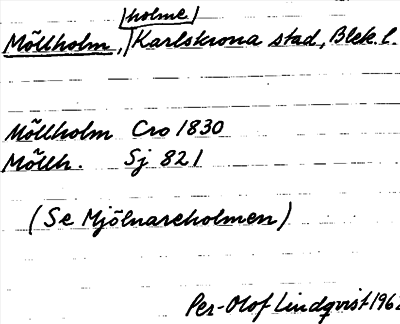 /holme/
Möllholm, Karlskrona stad, Blek. l.
Möllholm Cro 1830
Möllh. Sj 821
(Se Mjölnareholmen)
Per-Olof Lindqvist